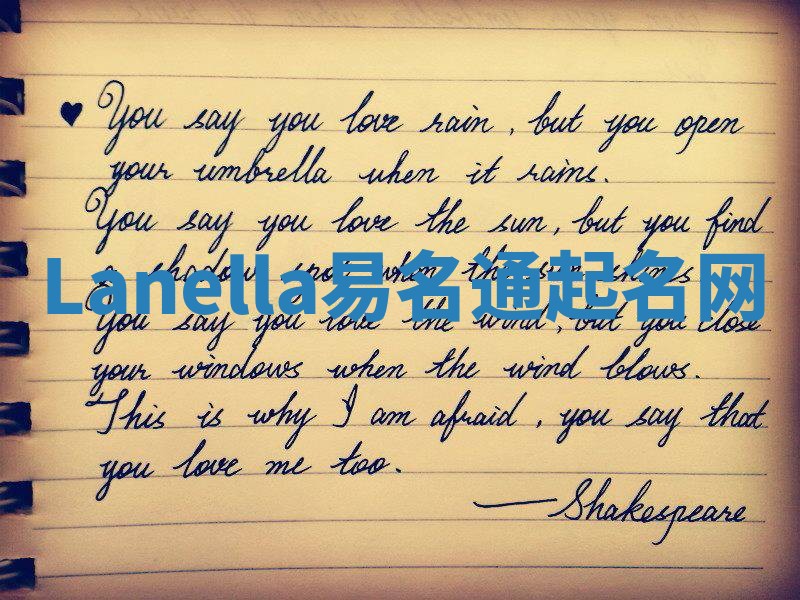 You say you love rain, but you open
your umbrella when it rains.
You say you love the sun, but you find
a shadow spot when the sun shines
Lanella易名通起名网
You say you love the wind, but you close
your windows when the wind blows.
This is why I am afraid, you say that
you love me too.
— Shakespeare